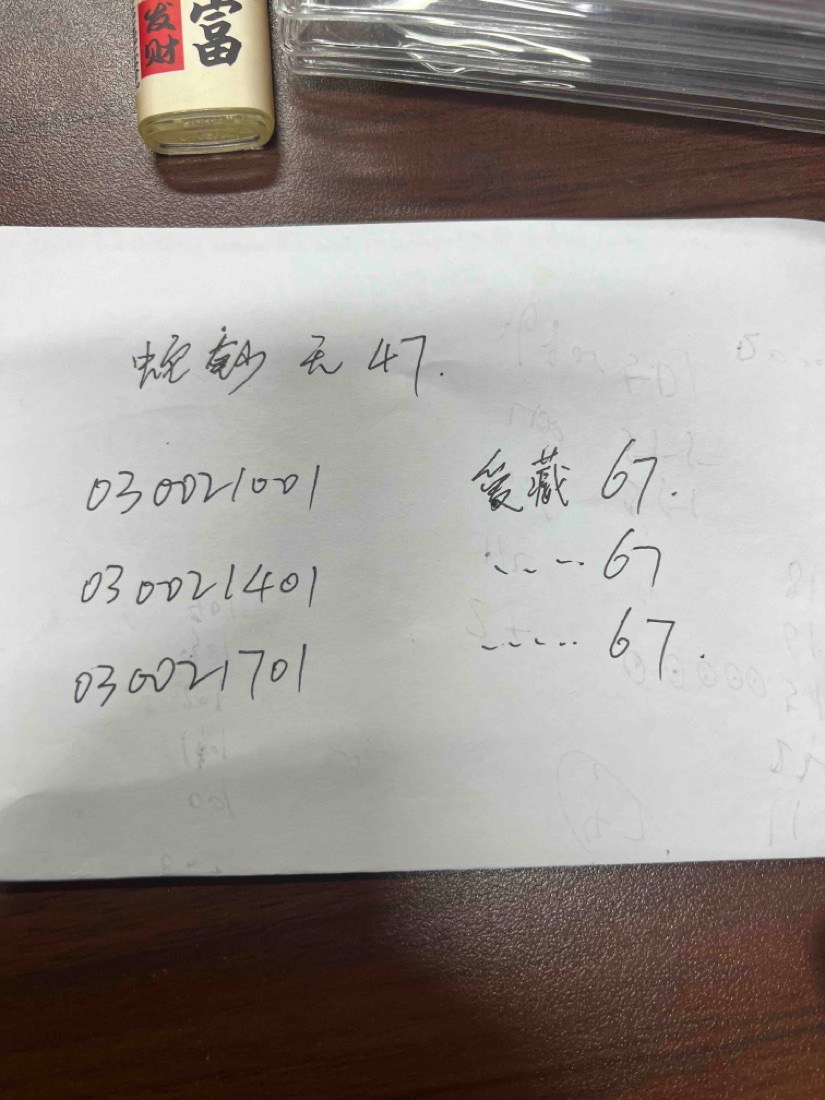 发财
富
蛇钞 无 47.
030021001 爱藏 67.
030021401 ..... 67
030021701 ...... 67.